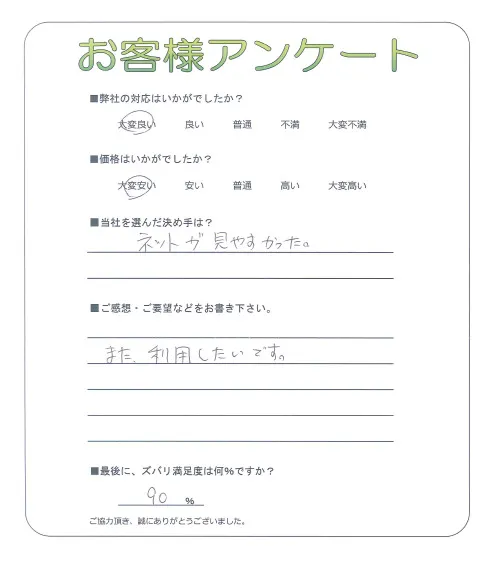 お客様アンケート
■弊社の対応はいかがでしたか？
大変良い 良い 普通 不満 大変不満
■価格はいかがでしたか？
大変安い 安い 普通 高い 大変高い
■当社を選んだ決め手は？
ネットが見やすかった。
■ご感想・ご要望などをお書き下さい。
また、利用したいです。
■最後に、ズバリ満足度は何%ですか？
90 %
ご協力頂き、誠にありがとうございました。